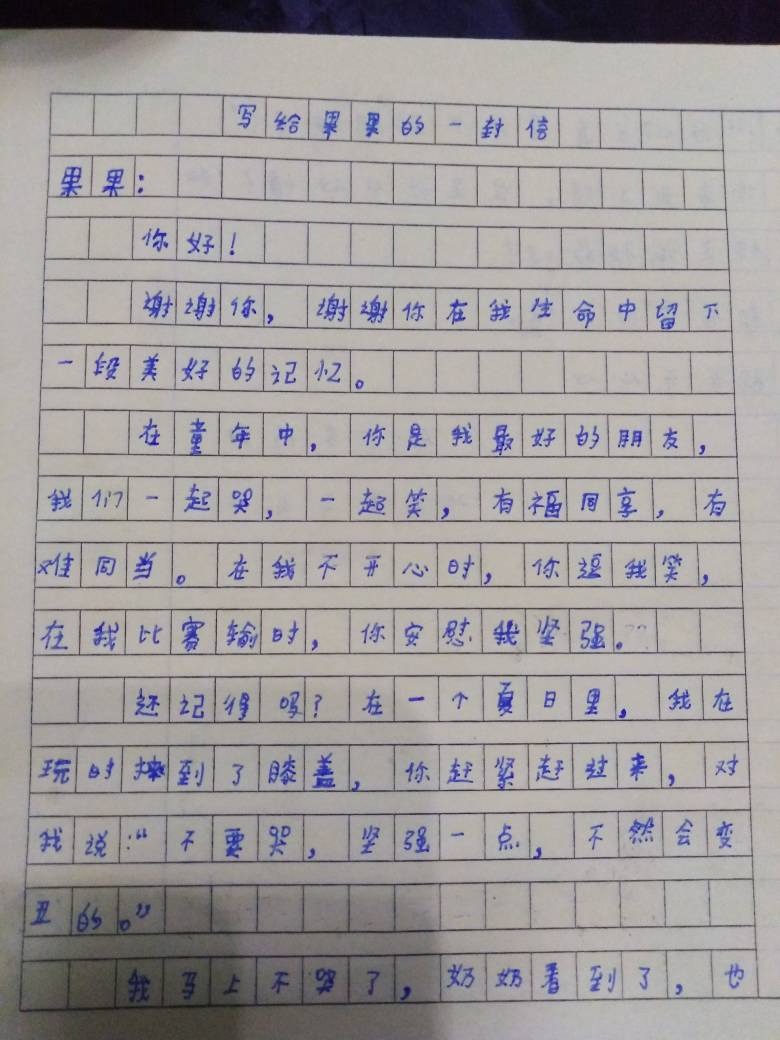 写给果果的一封信
果果：
你好！
谢谢你，谢谢你在我生命中留下
一段美好的记忆。
在童年中，你是我最好的朋友，
我们一起哭，一起笑，有福同享，有
难同当。在我不开心时，你逗我笑，
在我比赛输时，你安慰我坚强。
还记得吗？在一个夏日里，我在
玩时摔到了膝盖，你赶紧赶过来，对
我说：“不要哭，坚强一点，不然会变
丑的。”
我马上不哭了，奶奶看到了，也